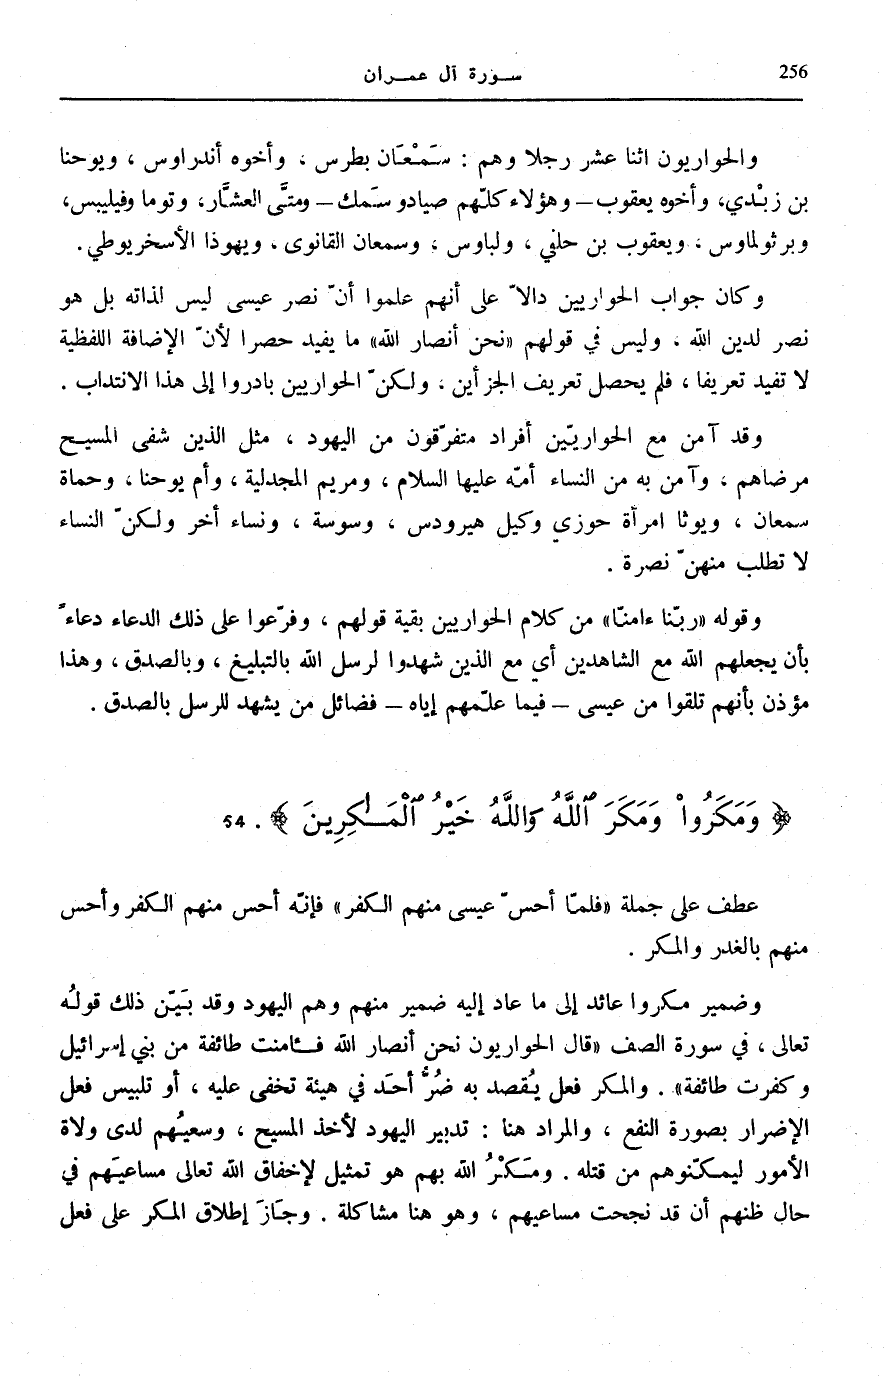 256
سورة آل عمران
والحواريون اثنا عشر رجلا وهم : سَمْعَان بطرس ، وأخوه أندراوس ، ويوحنا
بن زبْدي، وأخوه يعقوب – وهؤلاء كلّهم صيادو سَمك – ومتَّى العشَّار، وتوما وفيليبس،
وبرثولماوس ، ويعقوب بن حلفي ، ولباوس ، وسمعان القانوى ، ويهوذا الأسخريوطي.
وكان جواب الحواريين دالاّ على أنهم علموا أنّ نصر عيسى ليس لذاته بل هو
نصر لدين الله ، وليس في قولهم «نحن أنصار الله» ما يفيد حصرا لأنّ الإضافة اللفظية
لا تفيد تعريفا ، فلم يحصل تعريف الجزأين ، ولكنّ الحواريين بادروا إلى هذا الانتداب .
وقد آمن مع الحواريّين أفراد متفرّقون من اليهود ، مثل الذين شفى المسيح
مرضاهم ، وآمن به من النساء أمّه عليها السلام ، ومريم المجدلية ، وأم يوحنا ، وحماة
سمعان ، ويوثا امرأة حوزي وكيل هيرودس ، وسوسة ، ونساء أخر ولكنّ النساء
لا تطلب منهنّ نصرة .
وقوله «ربّنا ءامنّا» من كلام الحواريين بقية قولهم ، وفرّعوا على ذلك الدعاء دعاءً
بأن يجعلهم الله مع الشاهدين أي مع الذين شهدوا لرسل الله بالتبليغ ، وبالصدق ، وهذا
مؤذن بأنهم تلقوا من عيسى – فيما علّمهم إياه – فضائل من يشهد للرسل بالصدق .
﴿ وَمَكَرُواْ وَمَكَرَ ٱللَّهُ وَٱللَّهُ خَيْرُ ٱلْمَـٰكِرِينَ ﴾ . 54
عطف على جملة «فلمّا أحسّ عيسى منهم الكفر» فإنّه أحس منهم الكفر وأحس
منهم بالغدر والمكر .
وضمير مكروا عائد إلى ما عاد إليه ضمير منهم وهم اليهود وقد بَيّن ذلك قولُه
تعالى ، في سورة الصف «قال الحواريون نحن أنصار الله فـئامنت طائفة من بني إسرائيل
وكفرت طائفة» . والمكر فعل يُقصد به ضُرُّ أحَد في هيئة تخفى عليه ، أو تلبيس فعل
الإضرار بصورة النفع ، والمراد هنا : تدبير اليهود لأخذ المسيح ، وسعيُهم لدى ولاة
الأمور ليمكّنوهم من قتله . ومَكْرُ الله بهم هو تمثيل لإخفاق الله تعالى مساعيَهم في
حال ظنهم أن قد نجحت مساعيهم ، وهو هنا مشاكلة . وجَازَ إطلاق المكر على فعل